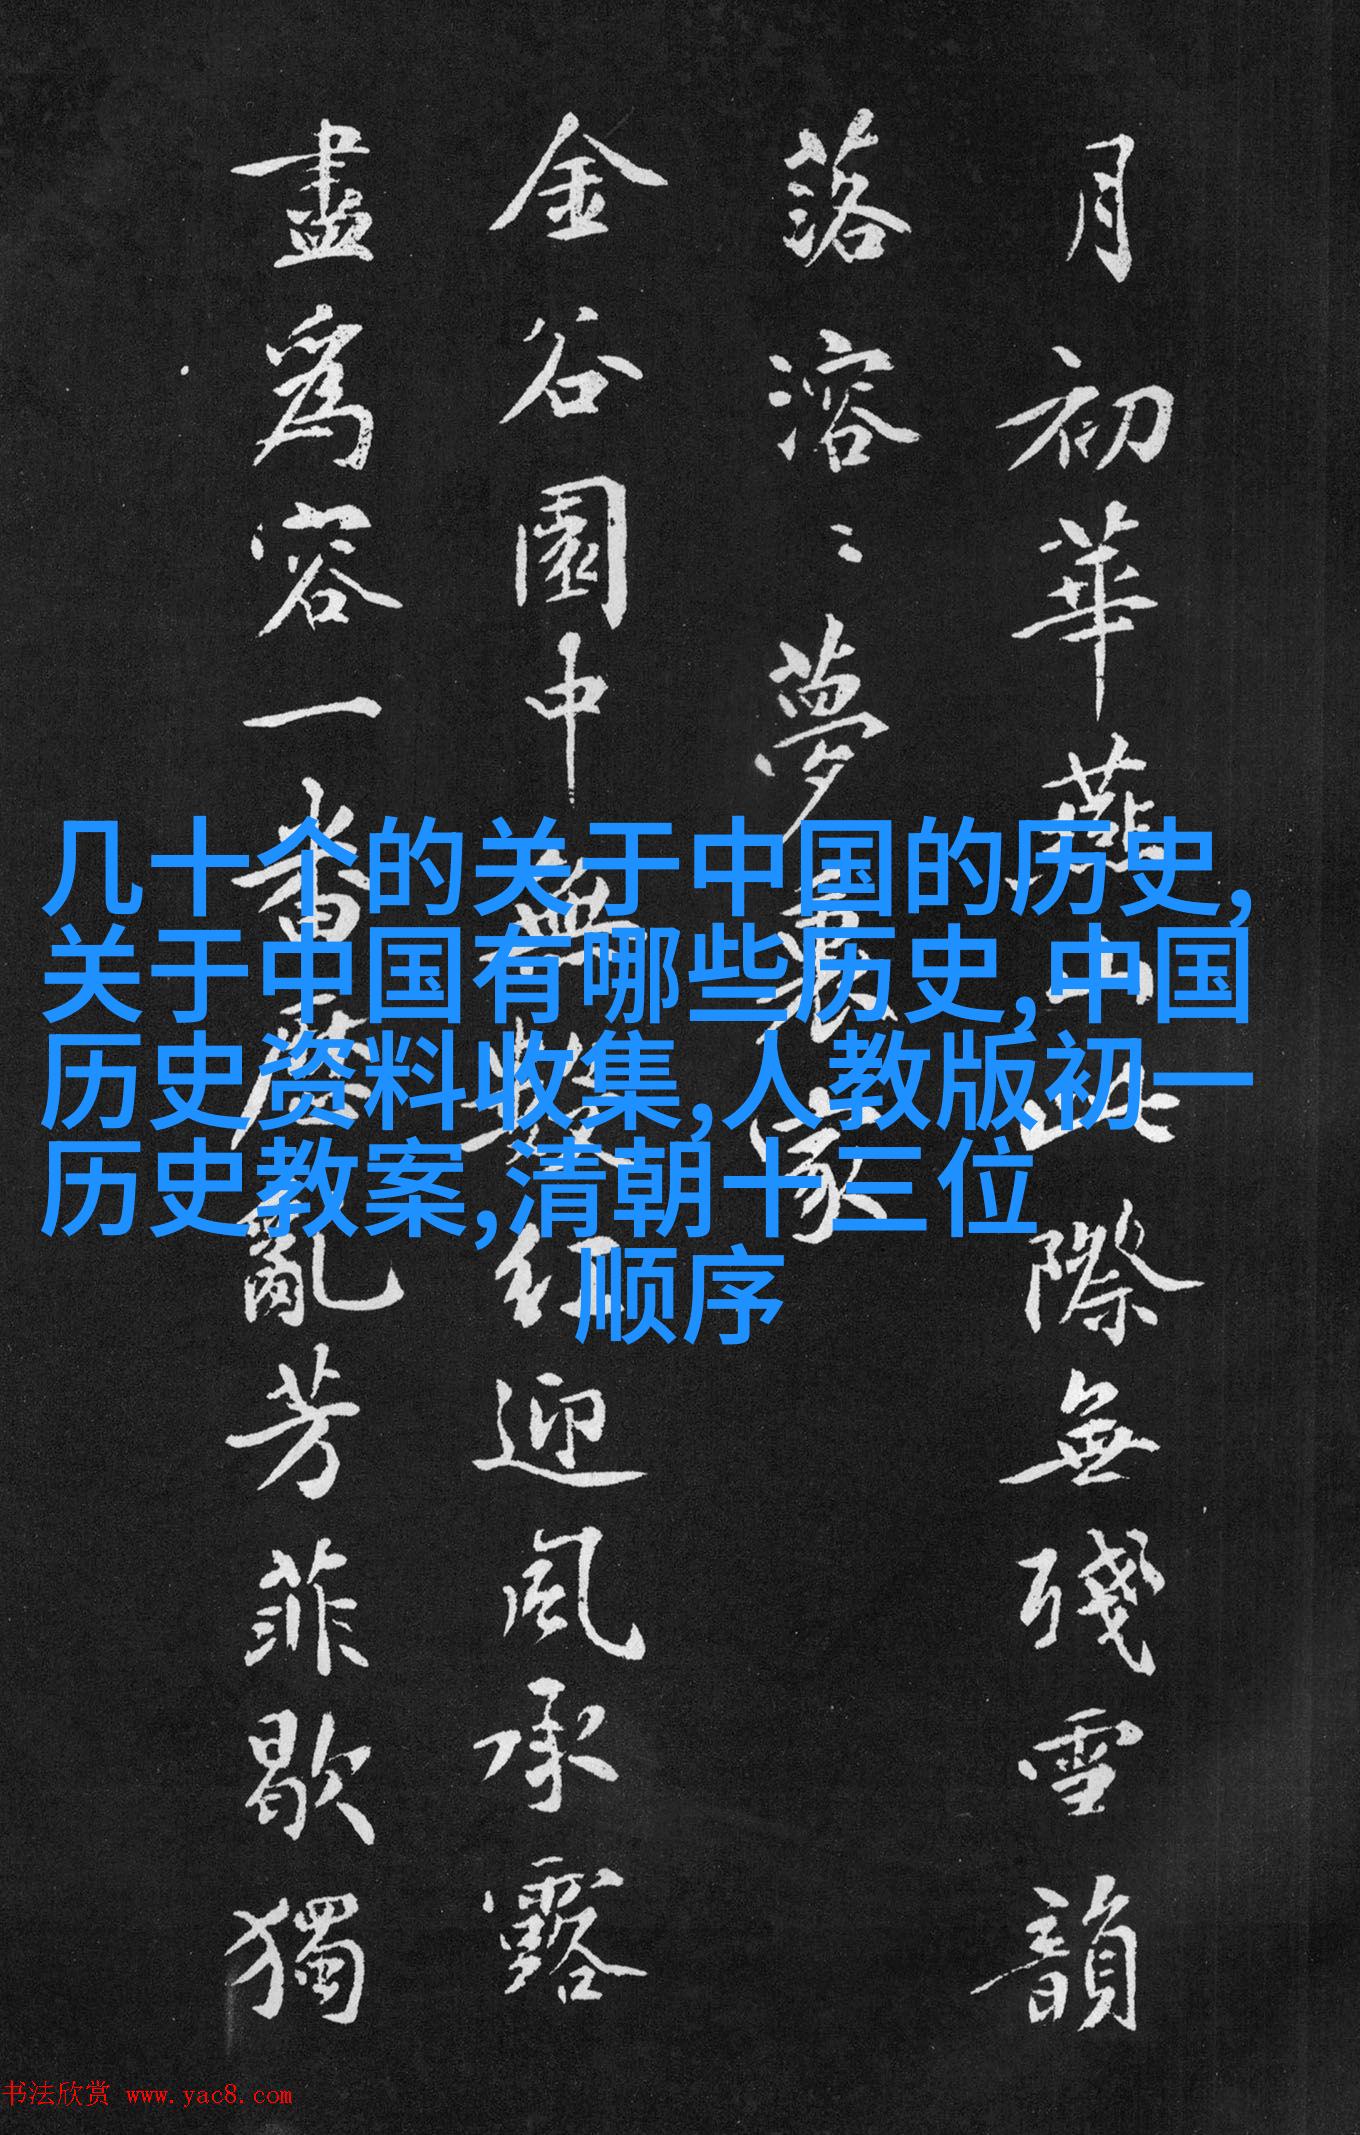 月初華燕山此際無殘雪韻
落溶〻夢裏家
金谷園中無數紅迎風承露
盡爲容一番摩亂芳菲歇獨
几十个的关于中国的历史,
关于中国有哪些历史,中国
历史资料收集,人教版初一
历史教案,清朝十三位
顺序
书法欣赏 www.yac8.com